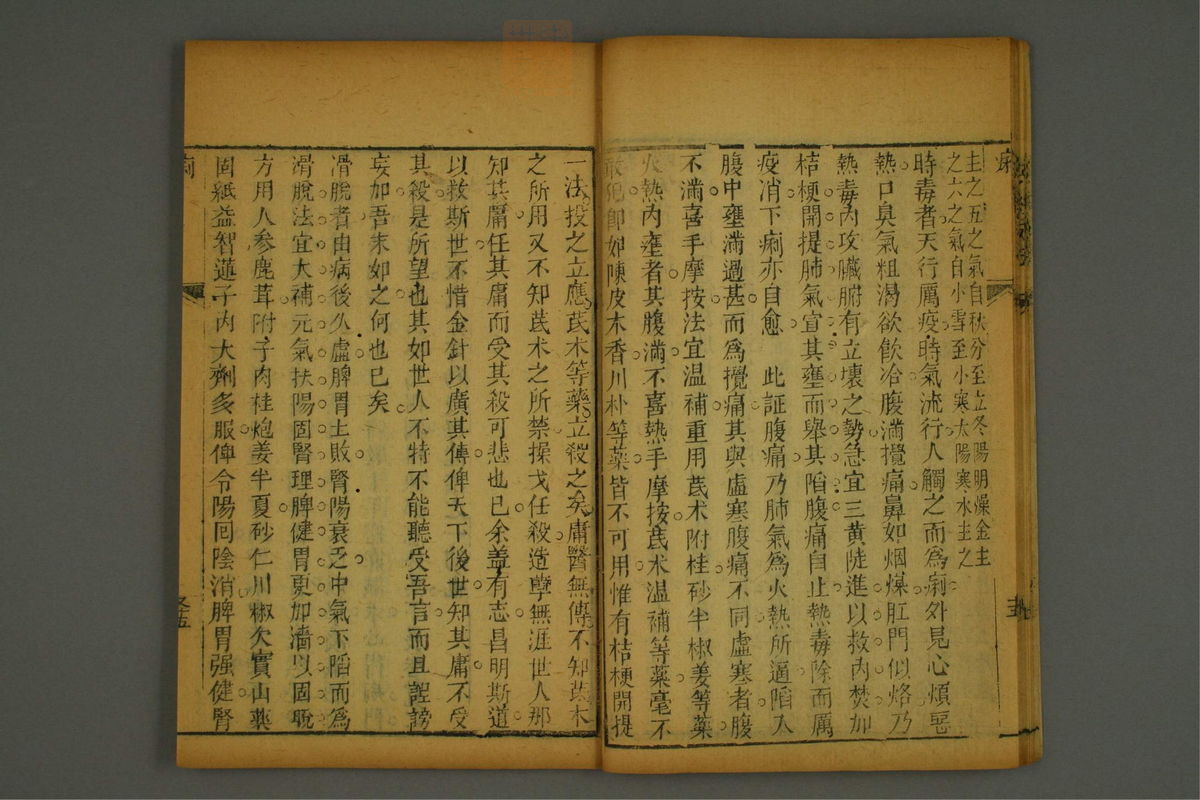 主之五之氣自秋分至立冬陽明燥金主
之六之氣自小雪至小寒太陽寒水主之
時毒者天行厲疫時氣流行人觸之而為痢外見心煩惡
熱口臭氣粗渴欲飲冷腹滿攪痛鼻如烟煤肛門似烙乃
熱毒內攻臟腑有立壞之勢急宜三黄陡進以救內焚加
桔梗開提肺氣宣其壅而舉其陷腹痛自止熱毒除而厲
疫消下痢亦自愈　此証腹痛乃肺氣為火熱所逼陷入
腹中壅滿過甚而為攪痛其與虛寒腹痛不同虛寒者腹
不滿喜手摩按法宜温補重用茋术附桂砂半椒姜等藥
火熱內壅者其腹滿不喜熱手摩按茋术温補等藥毫不
敢犯即如陳皮木香川朴等藥皆不可用惟有桔梗開提
一法投之立應茋术等藥立殺之矣庸醫無傳不知茋术
之所用又不知茋术之所禁操戈任殺造孽無涯世人那
知其庸任其庸而受其殺可悲也已余盖有志昌明斯道
以救斯世不惜金針以廣其傳俾天下後世知其庸不受
其殺是所望也其如世人不特不能聽受吾言而且謹謗
妄加吾末如之何也已矣
滑脫者由病後久虛脾胃土敗腎陽衰乏中氣下陷而為
滑脫法宜大補元氣扶陽固腎理脾健胃更加濇以固脫
方用人參鹿茸附子肉桂炮姜半夏砂仁川椒欠實山藥
固紙益智蓮子肉大劑多服俾令陽回陰消脾胃强健腎
痢